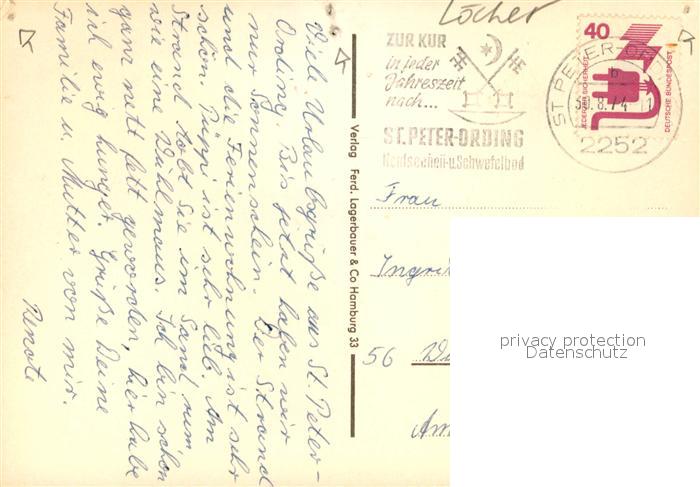 Löcher
ZUR KUR
in jeder
Jahreszeit
nach...
ST. PETER-ORDING
Nordseeheil- u. Schwefelbad
40
JEDERZEIT SICHERHEIT
DEUTSCHE BUNDESPOST
ST. PETER-ORDING
b
30.8.74 - 1
2252
Viele Urlaubsgrüße aus St. Peter-
Ording. Bis jetzt haben wir
nur Sonnenschein. Der Strand
und die Ferienwohnung ist sehr
schön. Püppi ist sehr lieb. Am
Strand tobt sie im Sand rum
wie eine Wühlmaus. Ich bin schon
ganz nett fett geworden, hier habe
ich ewig hunger. Grüße Deine
Familie u. Mutter von mir.
Renate
Verlag Ferd. Lagerbauer & Co Hamburg 33
Frau
Ingri
56
Am
privacy protection
Datenschutz